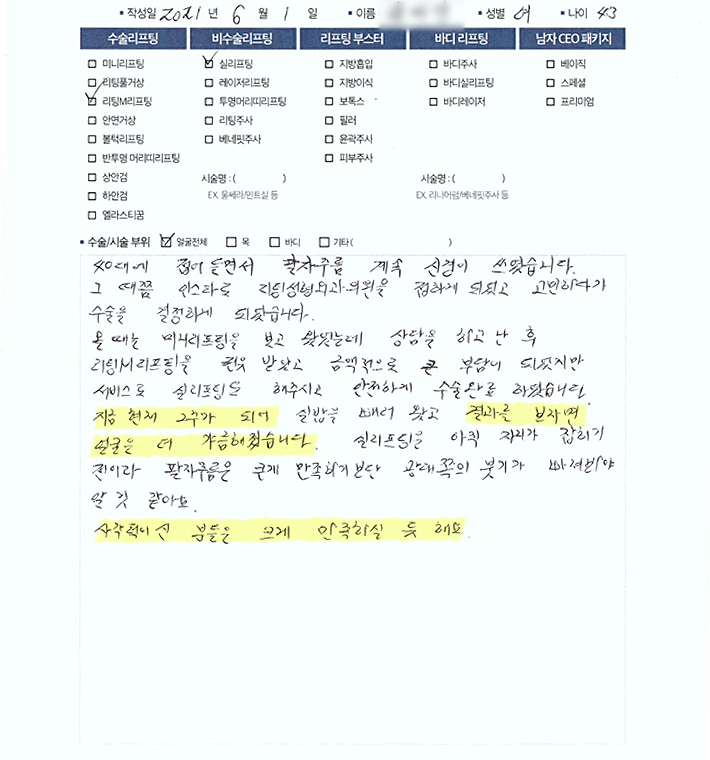 작성일 2021 년 6 월 1 일 이름 성별 여 나이 43
수술리프팅 비수술리프팅 리프팅 부스터 바디 리프팅 남자 CEO 패키지
미니리프팅 실리프팅 지방흡입 바디주사 베이직
리팅풀거상 레이저리프팅 지방이식 바디실리프팅 스페셜
리팅M리프팅 투명머리띠리프팅 보톡스 바디레이저 프리미엄
안면거상 리팅주사 필러
볼턱리프팅 베네핏주사 윤곽주사
반투명 머리띠리프팅 피부주사
상안검 시술명 : ( ) 시술명 : ( )
하안검 EX. 울쎄라/민트실 등 EX. 리니어펌/베네핏주사 등
엘라스티꿈
수술/시술 부위 얼굴전체 목 바디 기타 ( )
40대에 접어들면서 팔자주름 계속 신경이 쓰였습니다.
그 때쯤 인스타로 리팅성형외과의원을 접하게 되었고 고민하다가
수술을 결정하게 되었습니다.
올 때는 미니리프팅을 보고 왔었는데 상담을 하고 난 후
리팅M리프팅을 권유 받았고 금액적으로 큰 부담이 되었지만
서비스로 실리프팅도 해주시고 안전하게 수술완료 하였습니다.
지금 현재 2주가 되어 실밥을 빼러 왔고 결과를 보자면
얼굴은 더 갸름해졌습니다. 실리프팅은 아직 자리가 잡히기
전이라 팔자주름은 크게 만족하기보단 광대쪽의 붓기가 빠져봐야
알 것 같아요.
사각턱이신 분들은 크게 만족하실 듯 해요.